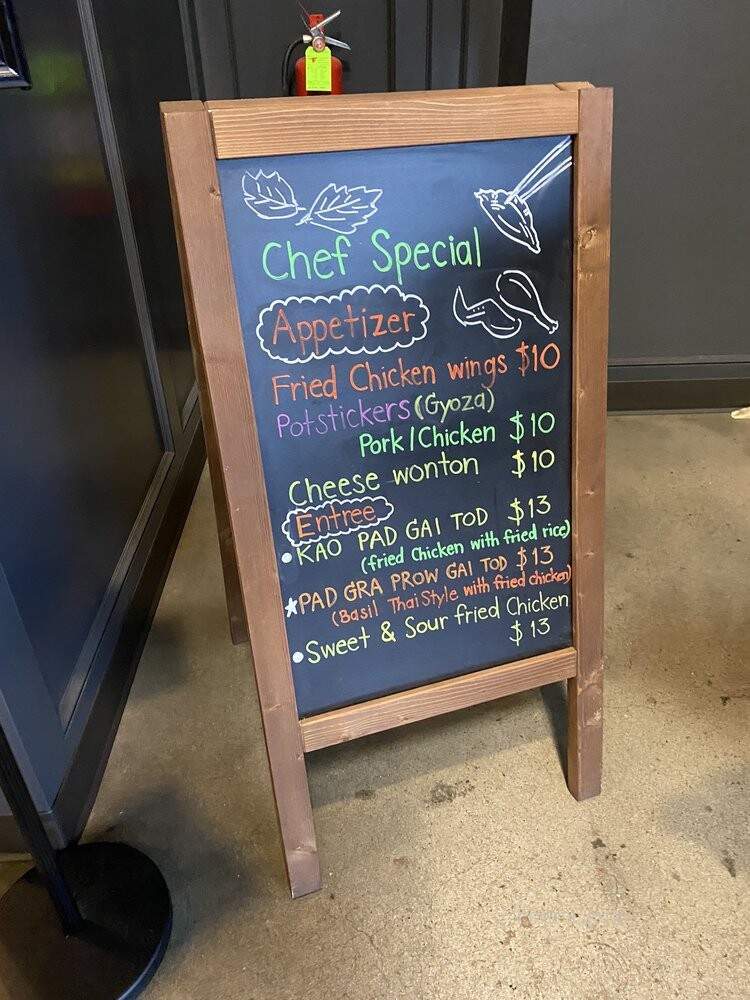 Chef Special
Appetizer
Fried Chicken wings $10
Potstickers (Gyoza)
Pork/Chicken $10
Cheese wonton $10
Entree
• KAO PAD GAI TOD $13
(fried Chicken with fried rice)
★ PAD GRA PROW GAI TOD $13
(Basil Thai Style with fried chicken)
• Sweet & Sour fried Chicken
$13